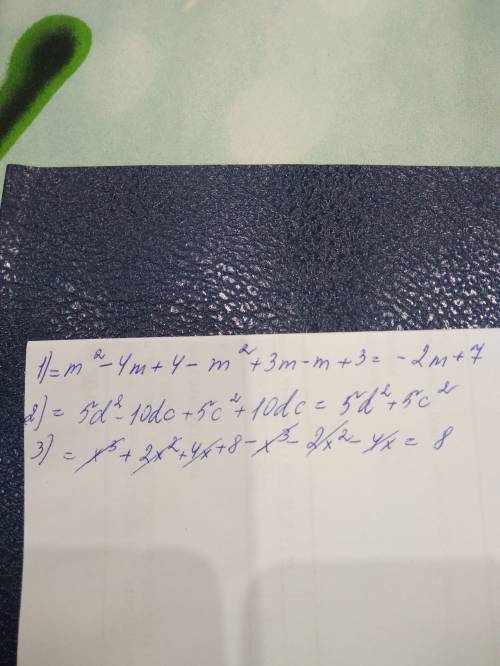 1) = m² - 4m + 4 - m² + 3m - m + 3 = -2m + 7
2) = 5d² - 10dc + 5c² + 10dc = 5d² + 5c²
3) = x³ + 2x² + 4x + 8 - x³ - 2x² - 4x = 8